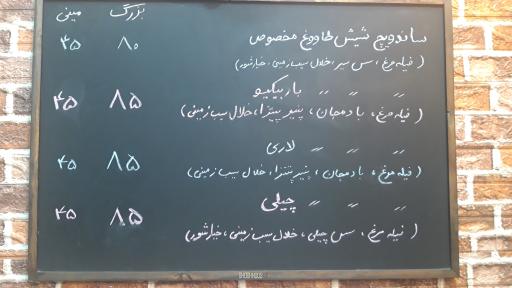 بزرگ مینی
ساندویچ شیش طاووغ مخصوص ۸۰ ۴۵
( فیله مرغ ، سس سیر ، خلال سیب زمینی ، خیارشور)
〃 〃 〃 باربیکیو ۸۵ ۴۵
( فیله مرغ ، بادمجان ، پنیر پیتزا ، خلال سیب زمینی )
〃 〃 〃 لاری ۸۵ ۴۵
( فیله مرغ ، بادمجان ، پنیر پیتزا ، خلال سیب زمینی )
〃 〃 〃 چیلی ۸۵ ۴۵
( فیله مرغ ، سس چیلی ، خلال سیب زمینی ، خیارشور)